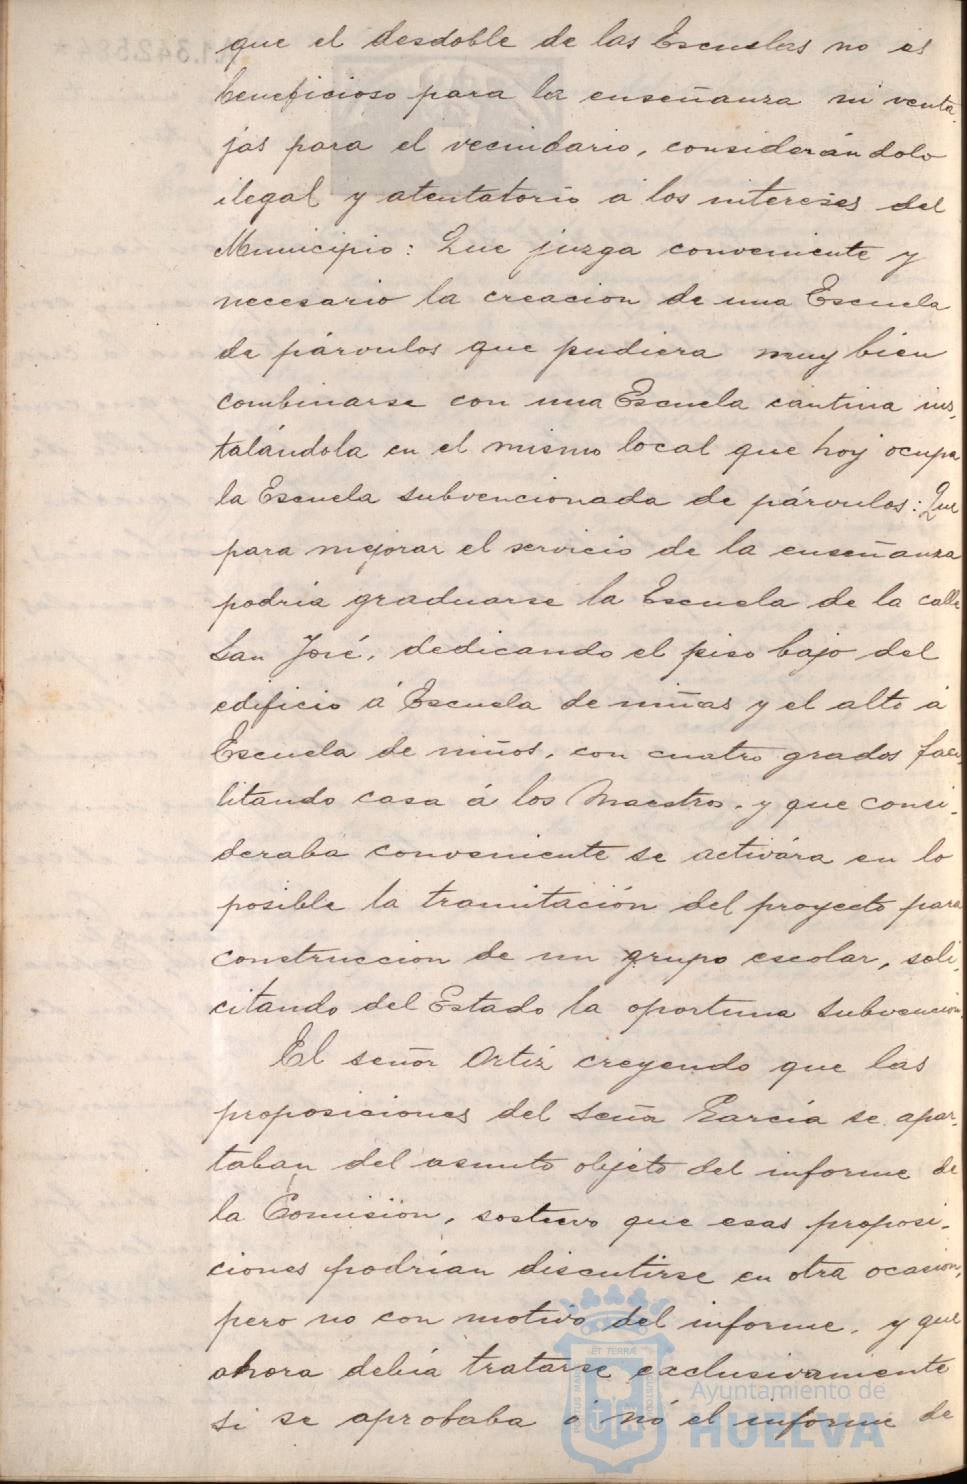 que el desdoble de las Escuelas no es
beneficioso para la enseñanza ni venta-
jas para el vecindario, considerándolo
ilegal y atentatorio a los intereses del
Municipio: Que juzga conveniente y
necesario la creacion de una Escuela
de párvulos que pudiera muy bien
combinarse con una Escuela cantina ins-
talándola en el mismo local que hoy ocupa
la Escuela subvencionada de párvulos: Que
para mejorar el servicio de la enseñanza
podria graduarse la Escuela de la calle
San José, dedicando el piso bajo del
edificio á Escuela de niñas y el alto á
Escuela de niños, con cuatro grados faci-
litando casa á los Maestros, y que consi-
deraba conveniente se activára en lo
posible la tramitación del proyecto para
construccion de un grupo escolar, soli-
citando del Estado la oportuna subvencion.
El señor Ortiz creyendo que las
proposiciones del señor García se apar-
taban del asunto objeto del informe de
la Comision, sostuvo que esas proposi-
ciones podrían discutirse en otra ocasion,
pero no con motivo del informe, y que
ahora debia tratarse exclusivamente
si se aprobaba ó nó el informe de
PORTUS MARIS ET TERRÆ CUSTODIA
Ayuntamiento de
HUELVA